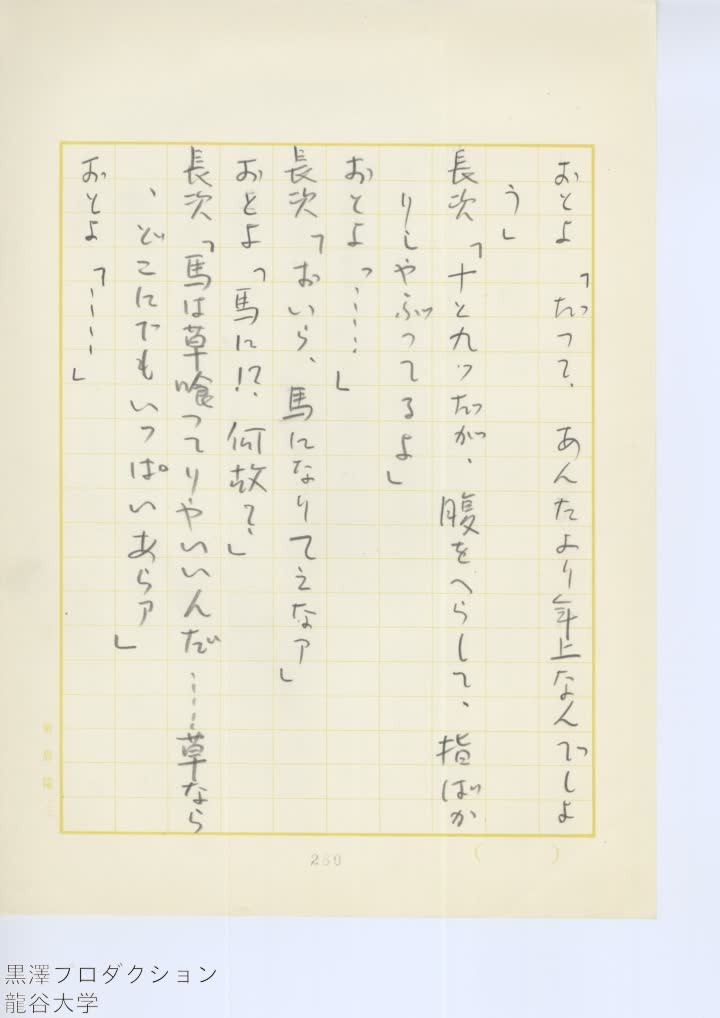 おとよ「だって、あんたより年上なんでしょ
う」
長次「十と九ツだが、腹をへらして、指ばか
りしゃぶってるよ」
おとよ「‥‥‥」
長次「おいら、馬になりてえなァ」
おとよ「馬に!? 何故?」
長次「馬は草喰ってりやいいんだ‥‥‥草なら
、どこにでもいっぱいあらァ」
おとよ「‥‥‥」
280
(　　)
黒澤プロダクション
龍谷大学